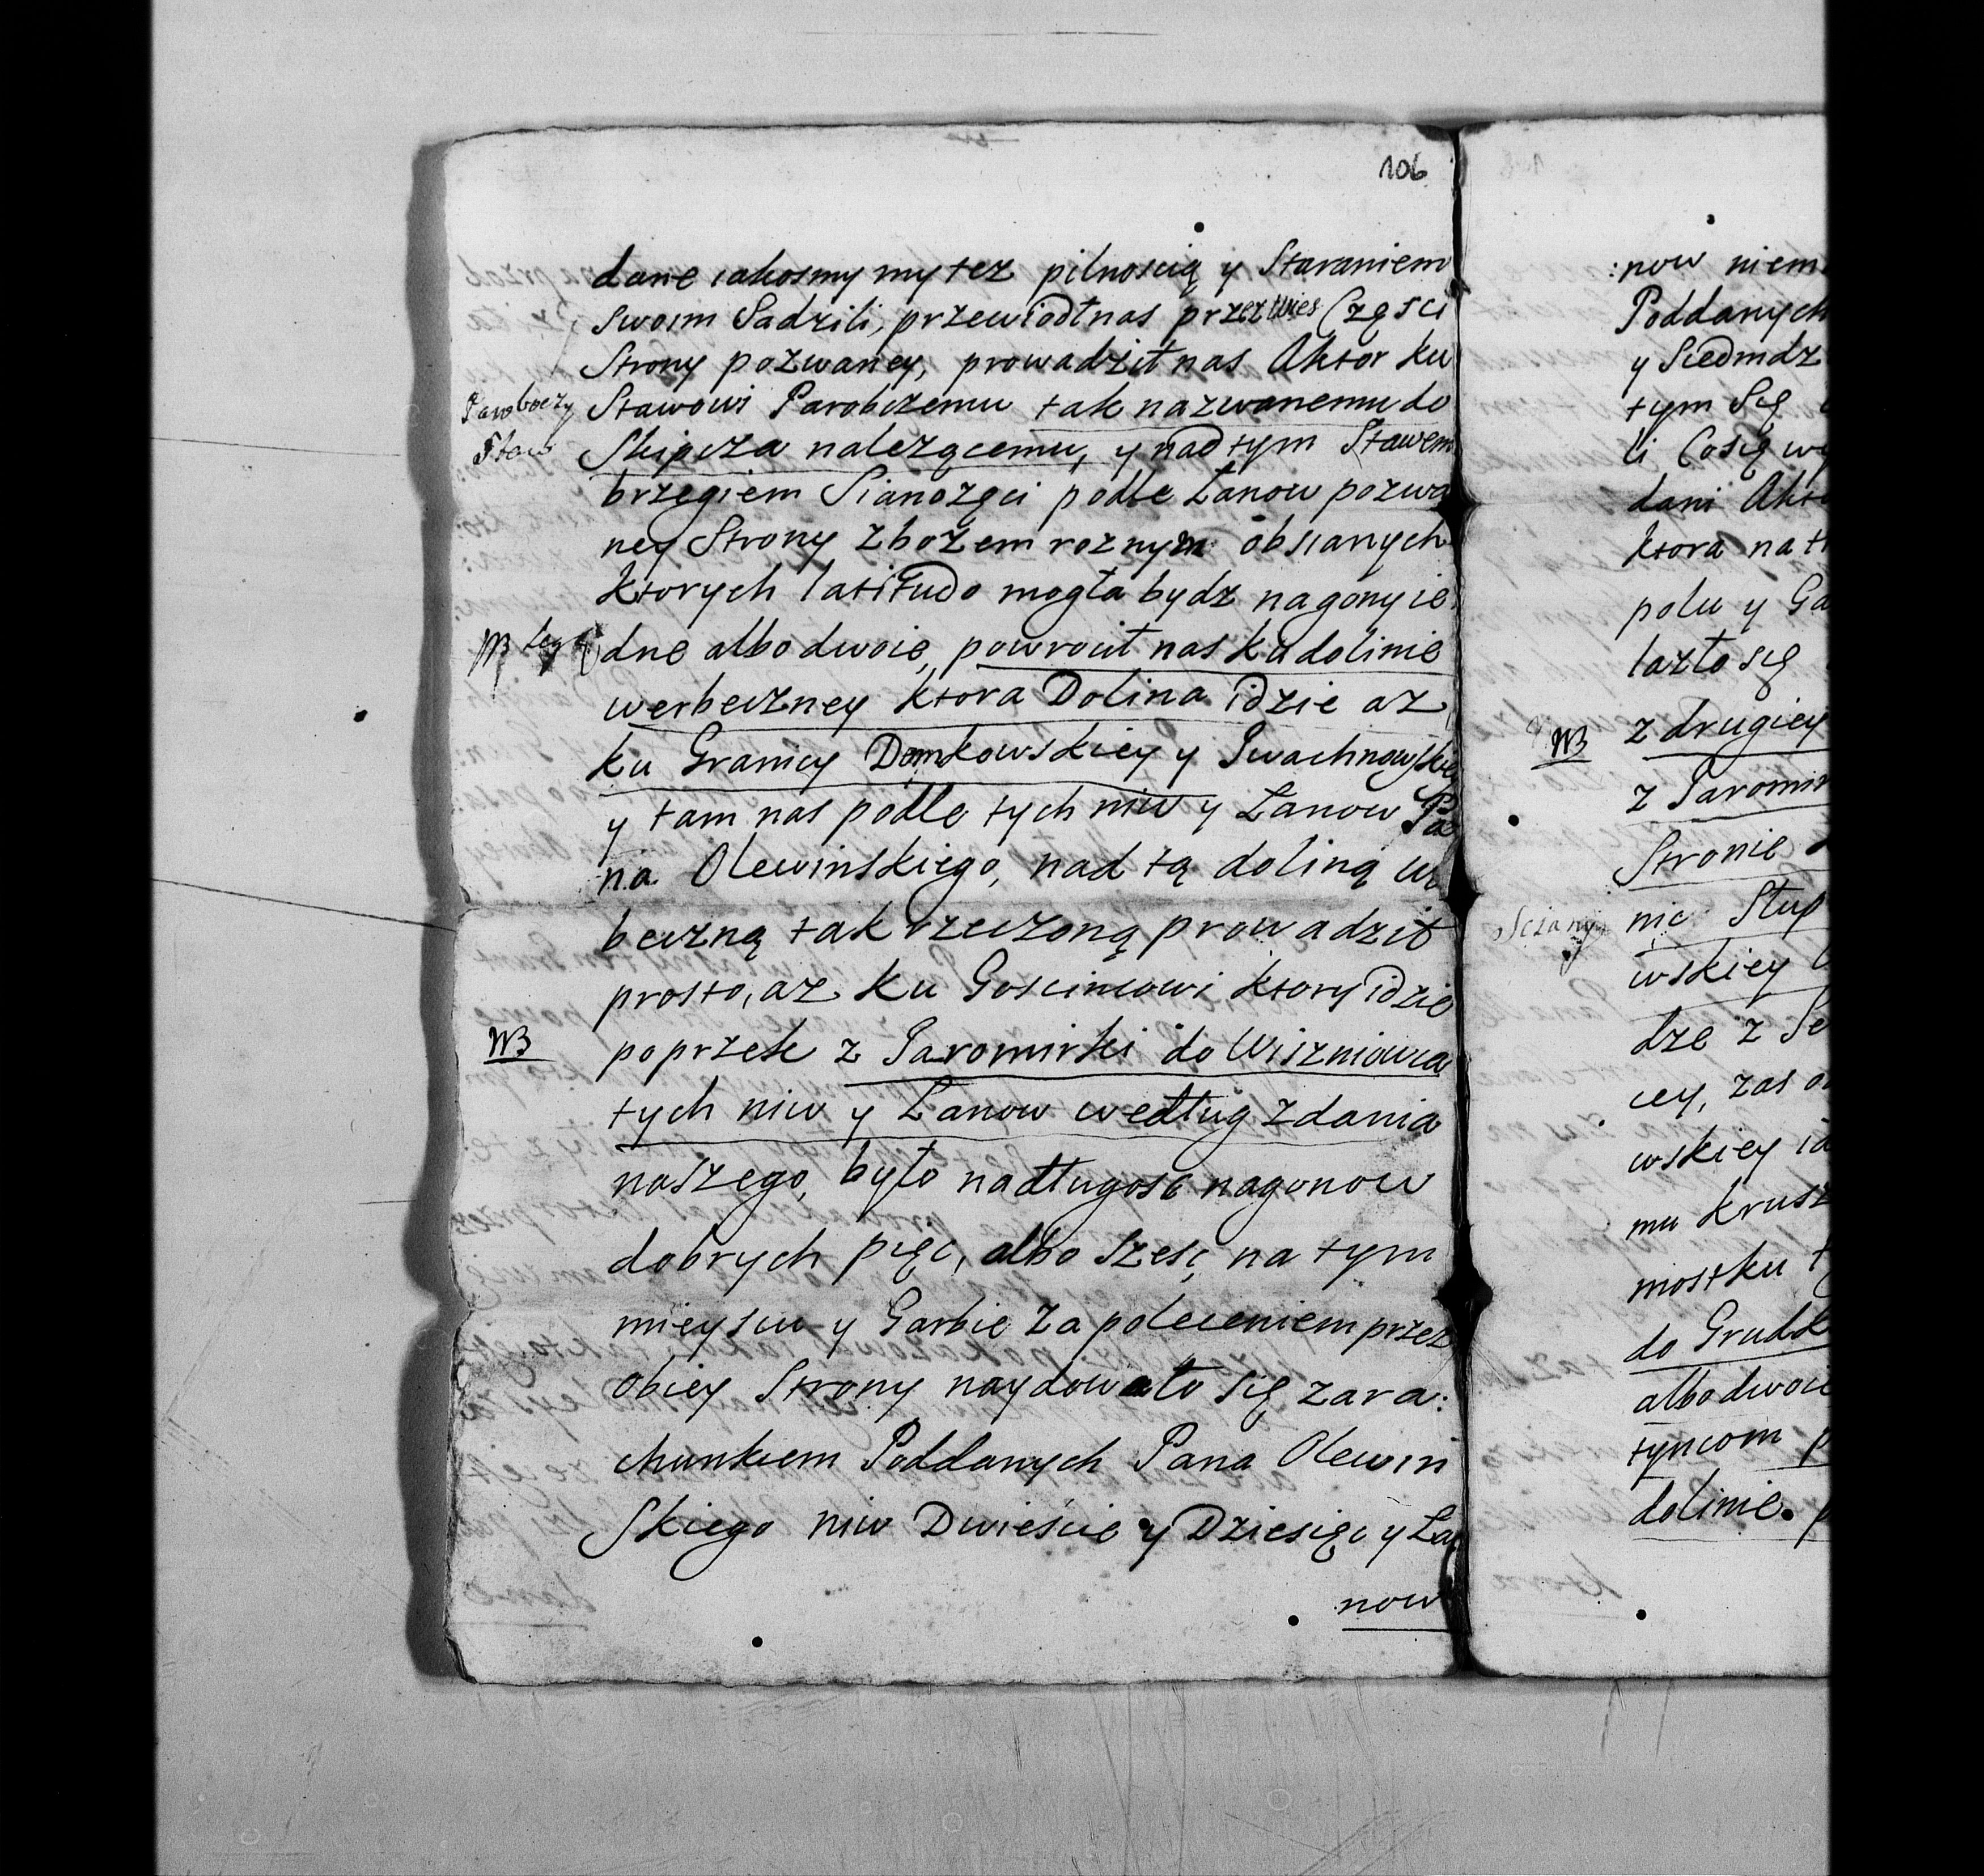 106
dane iakosmy my tez pilnoscią y Staraniem
Swoim Sadzili, przewiodł nas przez Wies Części
Strony pozwaney, prowadził nas Aktor ku
Paroboczy
Staw
Stawowi Parobczemu tak nazwanemu do
Skipcza nalezącemu, y nad tym Stawem
brzegiem Sianozęci podle Łanow pozwa
ney Strony zbozem roznym obsianych
ktorych latitudo mogła bydz nagony ie
dne albo dwoie, powrocił nas ku dolinie
werbeczney ktora Dolina idzie az
ku Granicy Domkowskiey y Iwachnowskiey
y tam nas podle tych niw y Łanow Pa
na Olewinskiego, nad tą doliną w
beczną tak rzeczoną prowadził
prosto, az ku Goscincowi ktory idzie
NB
poprzek z Jaromirki do Wiszniowca
tych niw y Łanow według zdania
naszego, było nadługosc nagonow
dobrych pięc, albo szesc, na tym
mieyscu y Garbie za poleceniem przez
Obiey Strony naydowało się zara:
chunkiem Poddanych Pana Olewin
Skiego niw Dwieście y Dziesięc y Ła
now
:now niem
Poddanych
y Siedmdz
tym Się
li Cosię wy
dani Akto
ktora na t
polu y Ga
lazło się
NB
z drugiey
z Jaromir
Stronie
Sciany
nic Słup
wskiey
dze z Se
cey, zas o
wskiey ia
mu krusz
mostku t
do Grudk
albo dwoie
tyncom p
dolinie. p